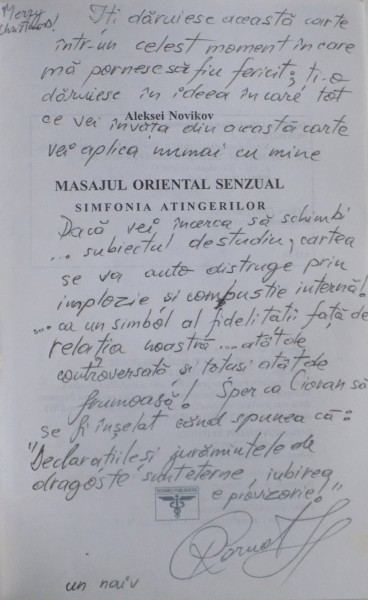 Merry Christmas!
Îți dăruiesc această carte
într-un celest moment în care
mă pornesc să fiu fericit; ți-o
dăruiesc în ideea în care tot
Aleksei Novikov
ce vei învăța din această carte
vei aplica numai cu mine
MASAJUL ORIENTAL SENZUAL
SIMFONIA ATINGERILOR
Dacă vei încerca să schimbi
... subiectul de studiu, cartea
se va auto distruge prin
implozie și combustie internă!
... ca un simbol al fidelității față de
relația noastră... atât de
controversată și totuși atât de
frumoasă! Sper ca Cioran să
se fi înșelat când spunea că:
"Declarațiile și jurămintele de
dragoste sunt eterne, iubirea
e provizorie!"
un naiv